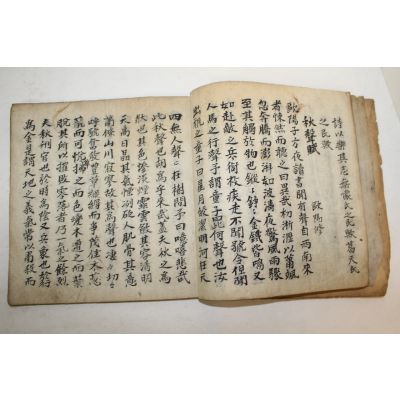 詩以樂其志無懷氏之民歟葛天氏
之民歟
秋聲賦 歐陽修
歐陽子方夜讀書聞有聲自西南來
者悚然而聽之曰異哉初淅瀝以蕭颯
忽奔騰而澎湃如波濤夜驚風雨驟
至其觸於物也鏦〻錚〻金鐵皆鳴又
如赴敵之兵銜枚疾走不聞號令但聞
人馬之行聲予謂童子此何聲也汝
出視之童子曰星月皎潔明河在天
四無人聲〻在樹間予曰噫嘻悲哉
此秋聲也胡爲乎來哉盖夫秋之爲
狀也其色慘淡烟霏雲歛其容清明
天高日晶其氣慄冽砭人肌骨其意
蕭條山川寂寥故其爲聲也凄〻切〻
呼號奮發豊草綠縟而爭茂佳木葱
蘢而可悅草拂之而色變木遭之而葉
脫其所以摧敗零落者乃一氣之餘烈
夫秋刑官也於時爲陰又兵象也於行
爲金是謂天地之義氣常以肅殺而